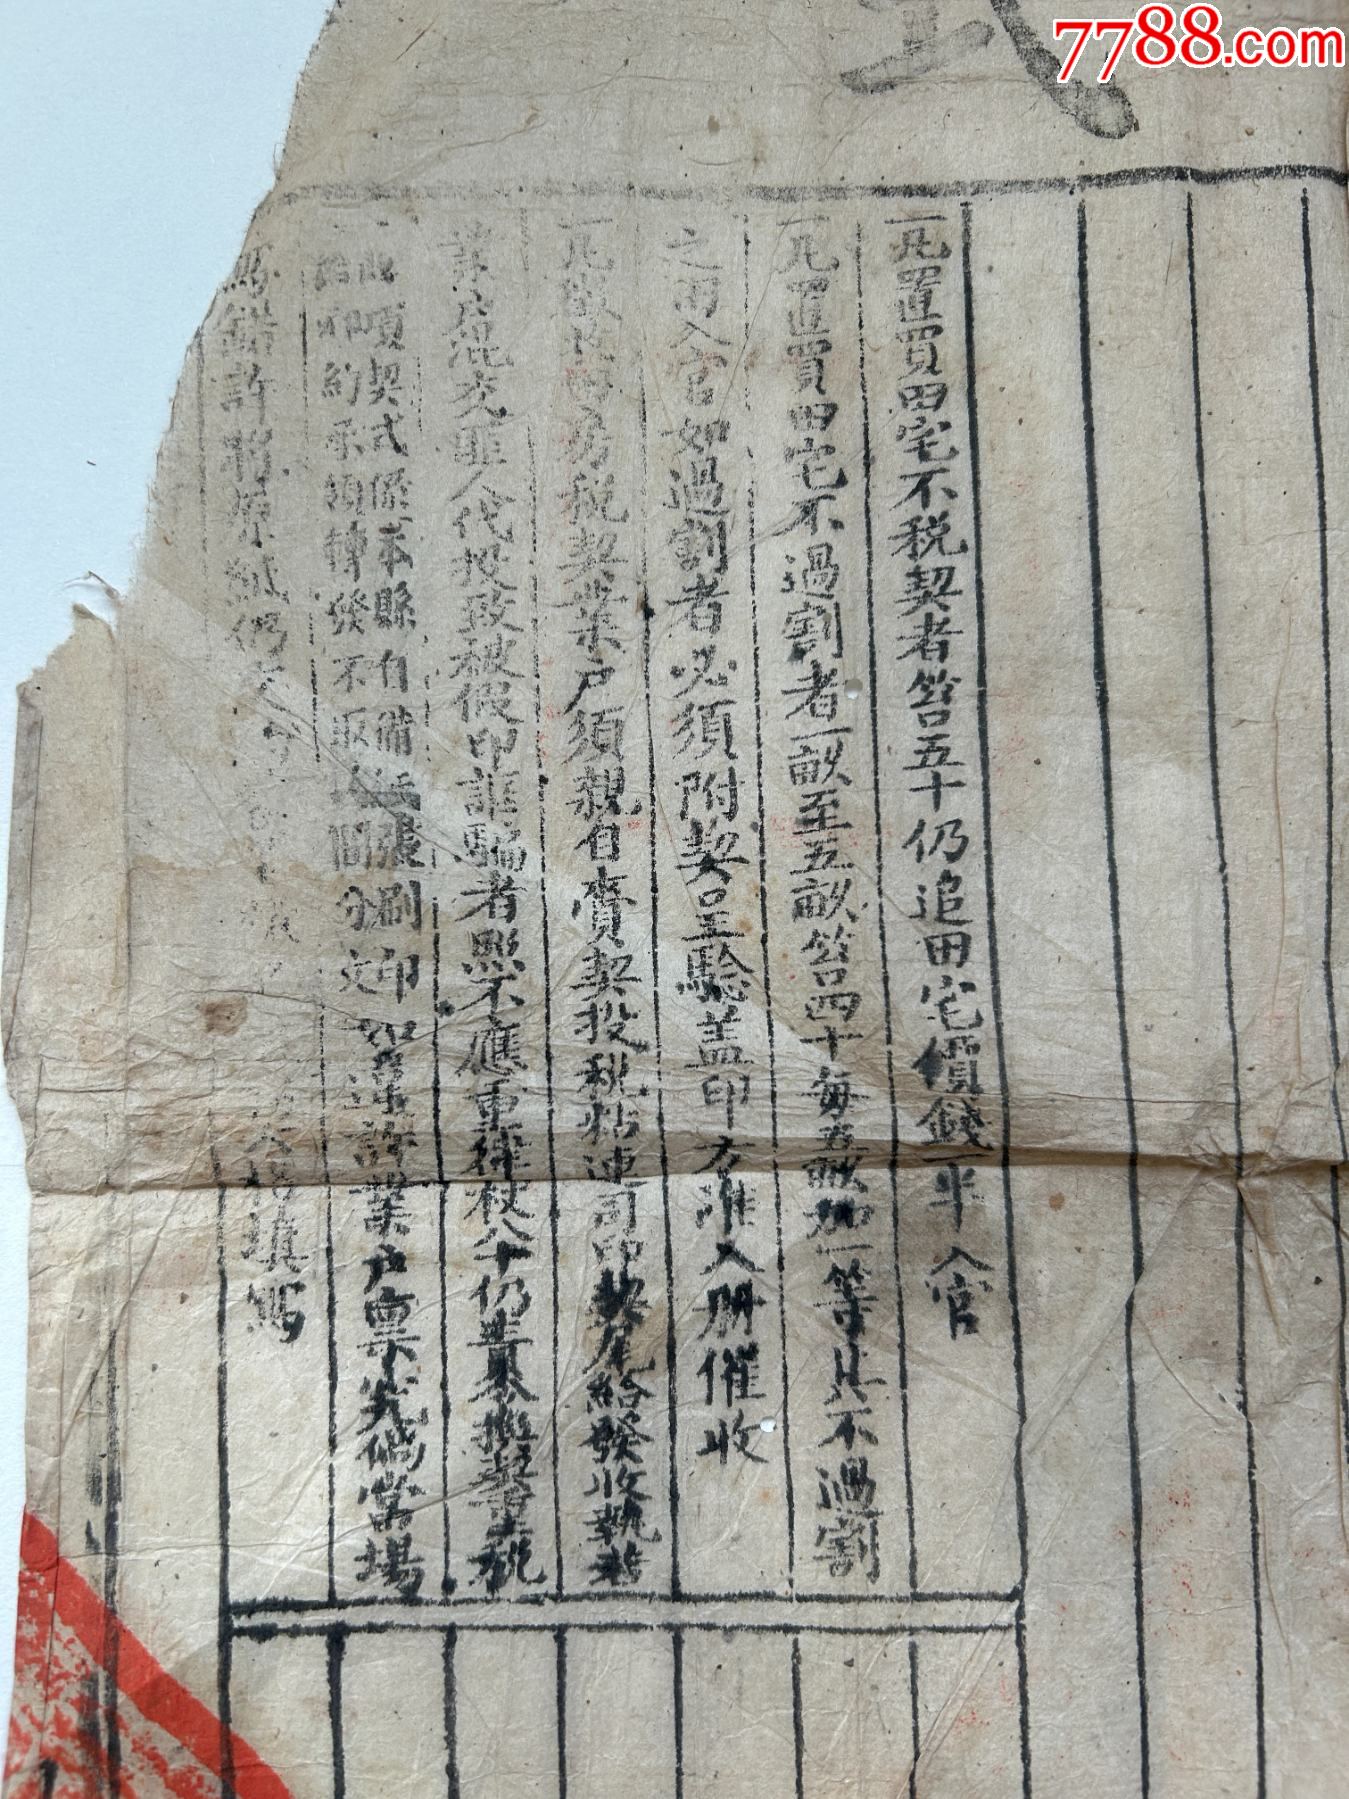 7788.com
式
一凡置買田宅不税契者笞五十仍追田宅價錢一半入官
一凡置買田宅不過割者一畝至五畝笞四十每五畝加一等其不過割
之田入官如過割者必須附契呈驗盖印方准入册催收
一凡 田房税契業户須親自賫契投税粘連司印契尾給發收執若
業户混交匪人代投致被假印誆騙者照不應重律杖八十仍 税
一此項契式係本縣自備 張刷印
給 約承領轉發不取民間分文如 許業户稟究倘當場
寫錯許將原紙仍 填寫